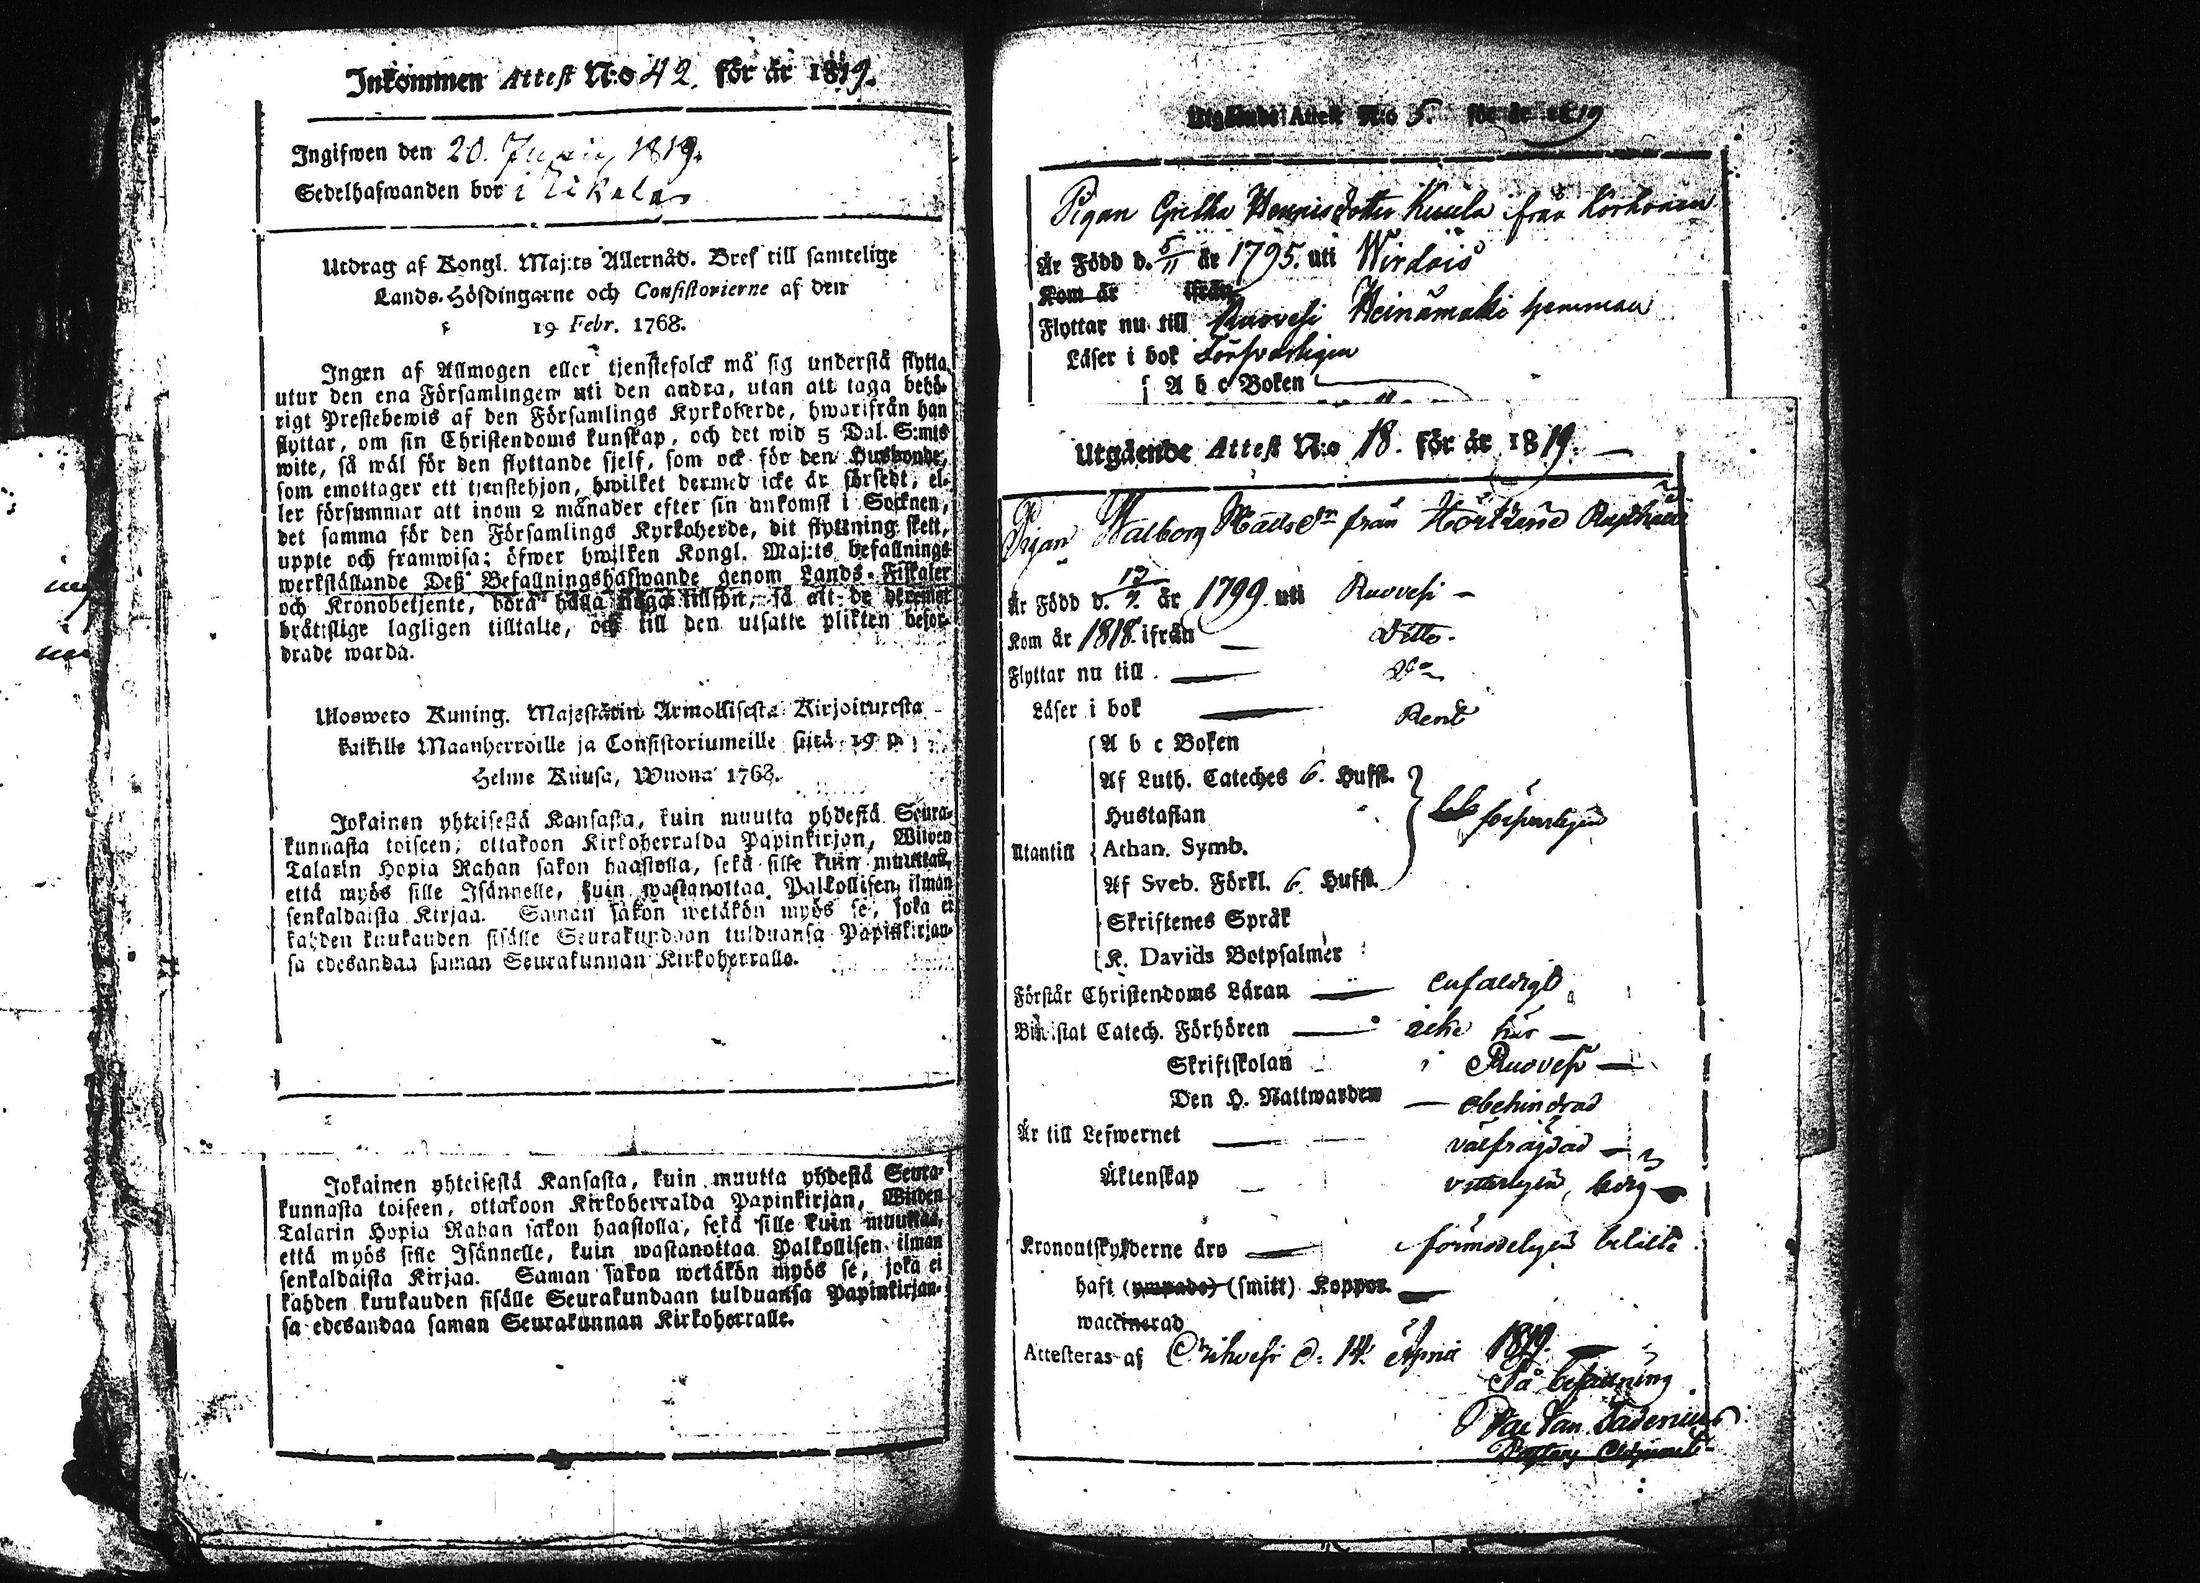 Inkommen Attest N:o 42. för år 1819.
Ingifwen den 20. Junii 1819.
Sedelhafwanden bor i
Utdrag af Kongl. Maj:ts Allernåd. Bref till samtelige
Lands-Höfdingarne och Consistorierne af den
19 Febr. 1768.
Ingen af Allmogen eller tjenstefolck må sig understå flytta
utur den ena Församlingen uti den andra, utan att taga behö-
rigt Prestebewis af den Församlings Kyrkoherde, hwarifrån han
flyttar, om sin Christendoms kunskap, och det wid 5 Dal. S:mts
wite, så wäl för den flyttande sjelf, som ock för den Husbonde,
som emottager ett tjenstehjon, hwilket dermed icke är försedt, el-
ler försummar att inom 2 månader efter sin ankomst i Socknen,
det samma för den Församlings Kyrkoherde, dit flyttning skett,
uppte och framwisa; öfwer hwilken Kongl. Maj:ts befallnings
werkställande Deß Befallningshafwande genom Lands-Fiskaler
och Kronobetjente, böra hålla noga tillsyn, så att de
brätslige lagligen tilltalte, och till den utsatte plikten befor-
drade warda.
Uloswero Kuning. Majestätin Armollisesta Kirjoituxesta
kaikille Maanherroille ja Consistoriumeille siitä 19 p.
Helme Kuusa, Wuona 1768.
Jokainen yhteisestä Kansasta, kuin muutta yhdestä Seura-
kunnasta toiseen, ottakoon Kirkoherralda Papinkirjan, Wiiden
Talarin Hopia Rahan sakon haastolla, sekä sille kuin muuttaa,
että myös sille Isännelle, kuin wastanottaa Palkollisen ilman
senkaldaista Kirjaa. Saman sakon wetäkön myös se, joka ei
kahden kuukauden sisälle Seurakundaan tulduansa Papinkirjan-
sa edesandaa saman Seurakunnan Kirkoherralle.
Jokainen yhteisestä Kansasta, kuin muutta yhdestä Seura-
kunnasta toiseen, ottakoon Kirkoherralda Papinkirjan, Wiiden
Talarin Hopia Rahan sakon haastolla, sekä sille kuin muuttaa,
että myös sille Isännelle, kuin wastanottaa Palkollisen ilman
senkaldaista Kirjaa. Saman sakon wetäkön myös se, joka ei
kahden kuukauden sisälle Seurakundaan tulduansa Papinkirjan-
sa edesandaa saman Seurakunnan Kirkoherralle.
Utgående Attest N:o 5. för år 1819
Pigan Gretha Henricsdotter Kuula ifrån Korhonen
Är Född d. 5/11 år 1795. uti Wirdois
Kom år ifrån
Flyttar nu till Ruovesi Heinämäki hemman
Läser i bok Försvarligen
A b c Boken
Utgående Attest N:o 18. för år 1819.
Pigan Walborg Mats dr från
Är Född d. 17/9. år 1799. uti Ruovesi
Kom år 1818. ifrån Ditto.
Flyttar nu till Do
Läser i bok Rent
A b c Boken
Af Luth. Cateches 6. Hufst.
Hustaflan försvarligen
Utantill Athan. Symb.
Af Sveb. Förkl. 6. Hufst.
Skriftenes Språk
K. Davids Botpsalmer
Förstår Christendoms Läran enfaldigt
Biwistat Catech. Förhören icke här
Skriftskolan i Ruovesi
Den H. Nattwarden obehindrad
Är till Lefwernet välfrägdad
Äktenskap vitterligen ledig
Kronoutskylderne äro förmodeligen betalte
haft (ympade) (smitt) Koppor.
waccinerad
Attesteras af Orihvesi d. 14. April 1819.
På befallning